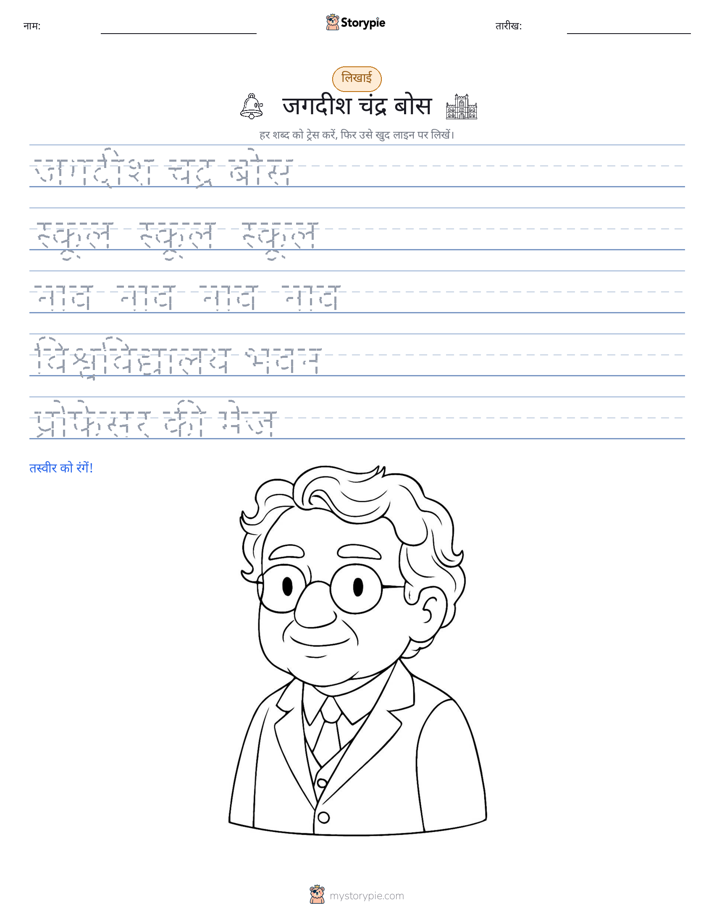 नाम:
Storypie
तारीख:
लिखाई
जगदीश चंद्र बोस
हर शब्द को ट्रेस करें, फिर उसे खुद लाइन पर लिखें।
जगदीश चंद्र बोस
स्कूल स्कूल स्कूल
नाव नाव नाव नाव
विश्वविद्यालय भवन
प्रोफेसर की मेज
तस्वीर को रंगें!
mystorypie.com